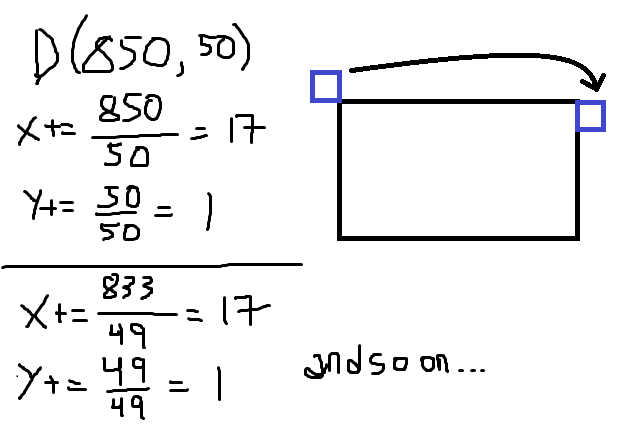 D(850, 50)
X+= 850/50 = 17
Y+= 50/50 = 1
X+= 833/49 = 17
Y+= 49/49 = 1
and so on...